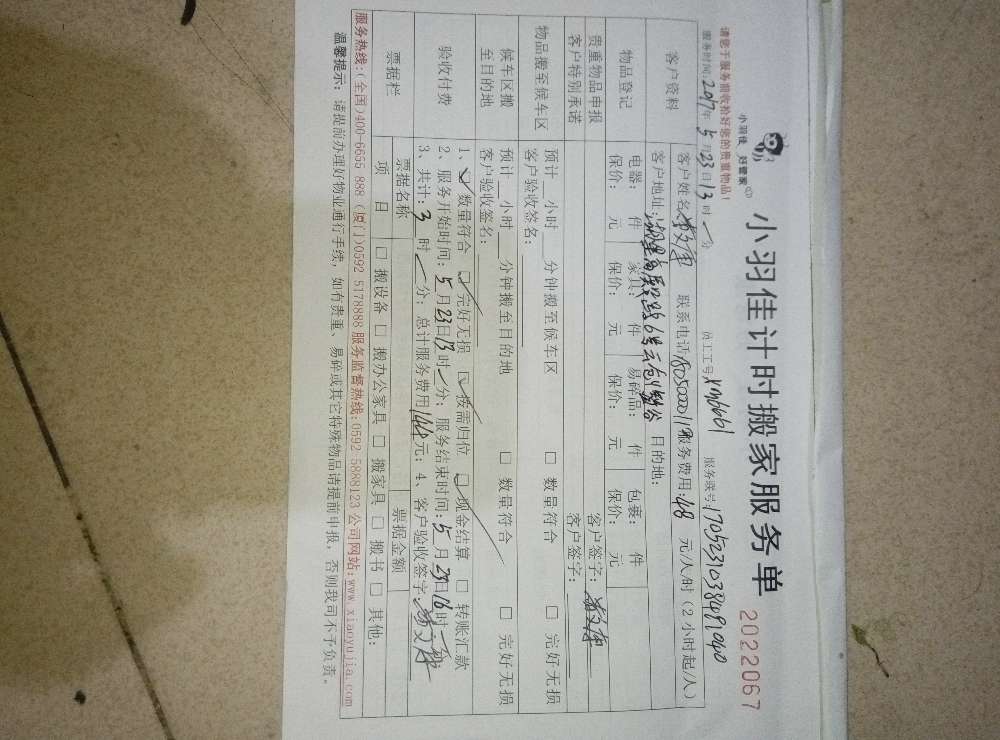 小羽佳 好管家
小羽佳计时搬家服务单
2022067
请您于服务前收拾好您的贵重物品!
服务时间:2017年5月23日13时 分 员工工号xm6661 服务账号:170523103849040
客户资料
客户姓名 联系电话18050000119服务费用:48 元/人/时 (2小时起/人)
客户地址: 目的地:
物品登记
电器: 件 家具: 件 易碎品: 件 包裹: 件
保价: 元 保价: 元 保价: 元 保价: 元
贵重物品申报 客户签字:
客户特别承诺 客户签字:
物品搬至候车区
预计 小时 分钟搬至候车区 □ 数量符合 □ 完好无损
客户验收签名:
候车区搬至目的地
预计 小时 分钟搬至目的地 □ 数量符合 □ 完好无损
客户验收签名:
验收付费
1、□数量符合 □完好无损 □按需归位 □现金结算 □转账汇款
2、服务开始时间:5月23日13时 分; 服务结束时间:5月23日16时
3、共计:3时 分; 总计服务费用144元; 4、客户验收签字:
票据栏
票据名称 票据金额
项 目 □搬设备 □搬办公家具 □搬家具 □搬书 □其他:
服务热线:(全国)400-6655 888 (厦门)0592 5178888 服务监督热线:0592 5888123 公司网站:www.xiaoyujia.com
温馨提示: 请提前办理好物业通行手续, 如有贵重、易碎或其它特殊物品请提前申报, 否则我司不予负责。